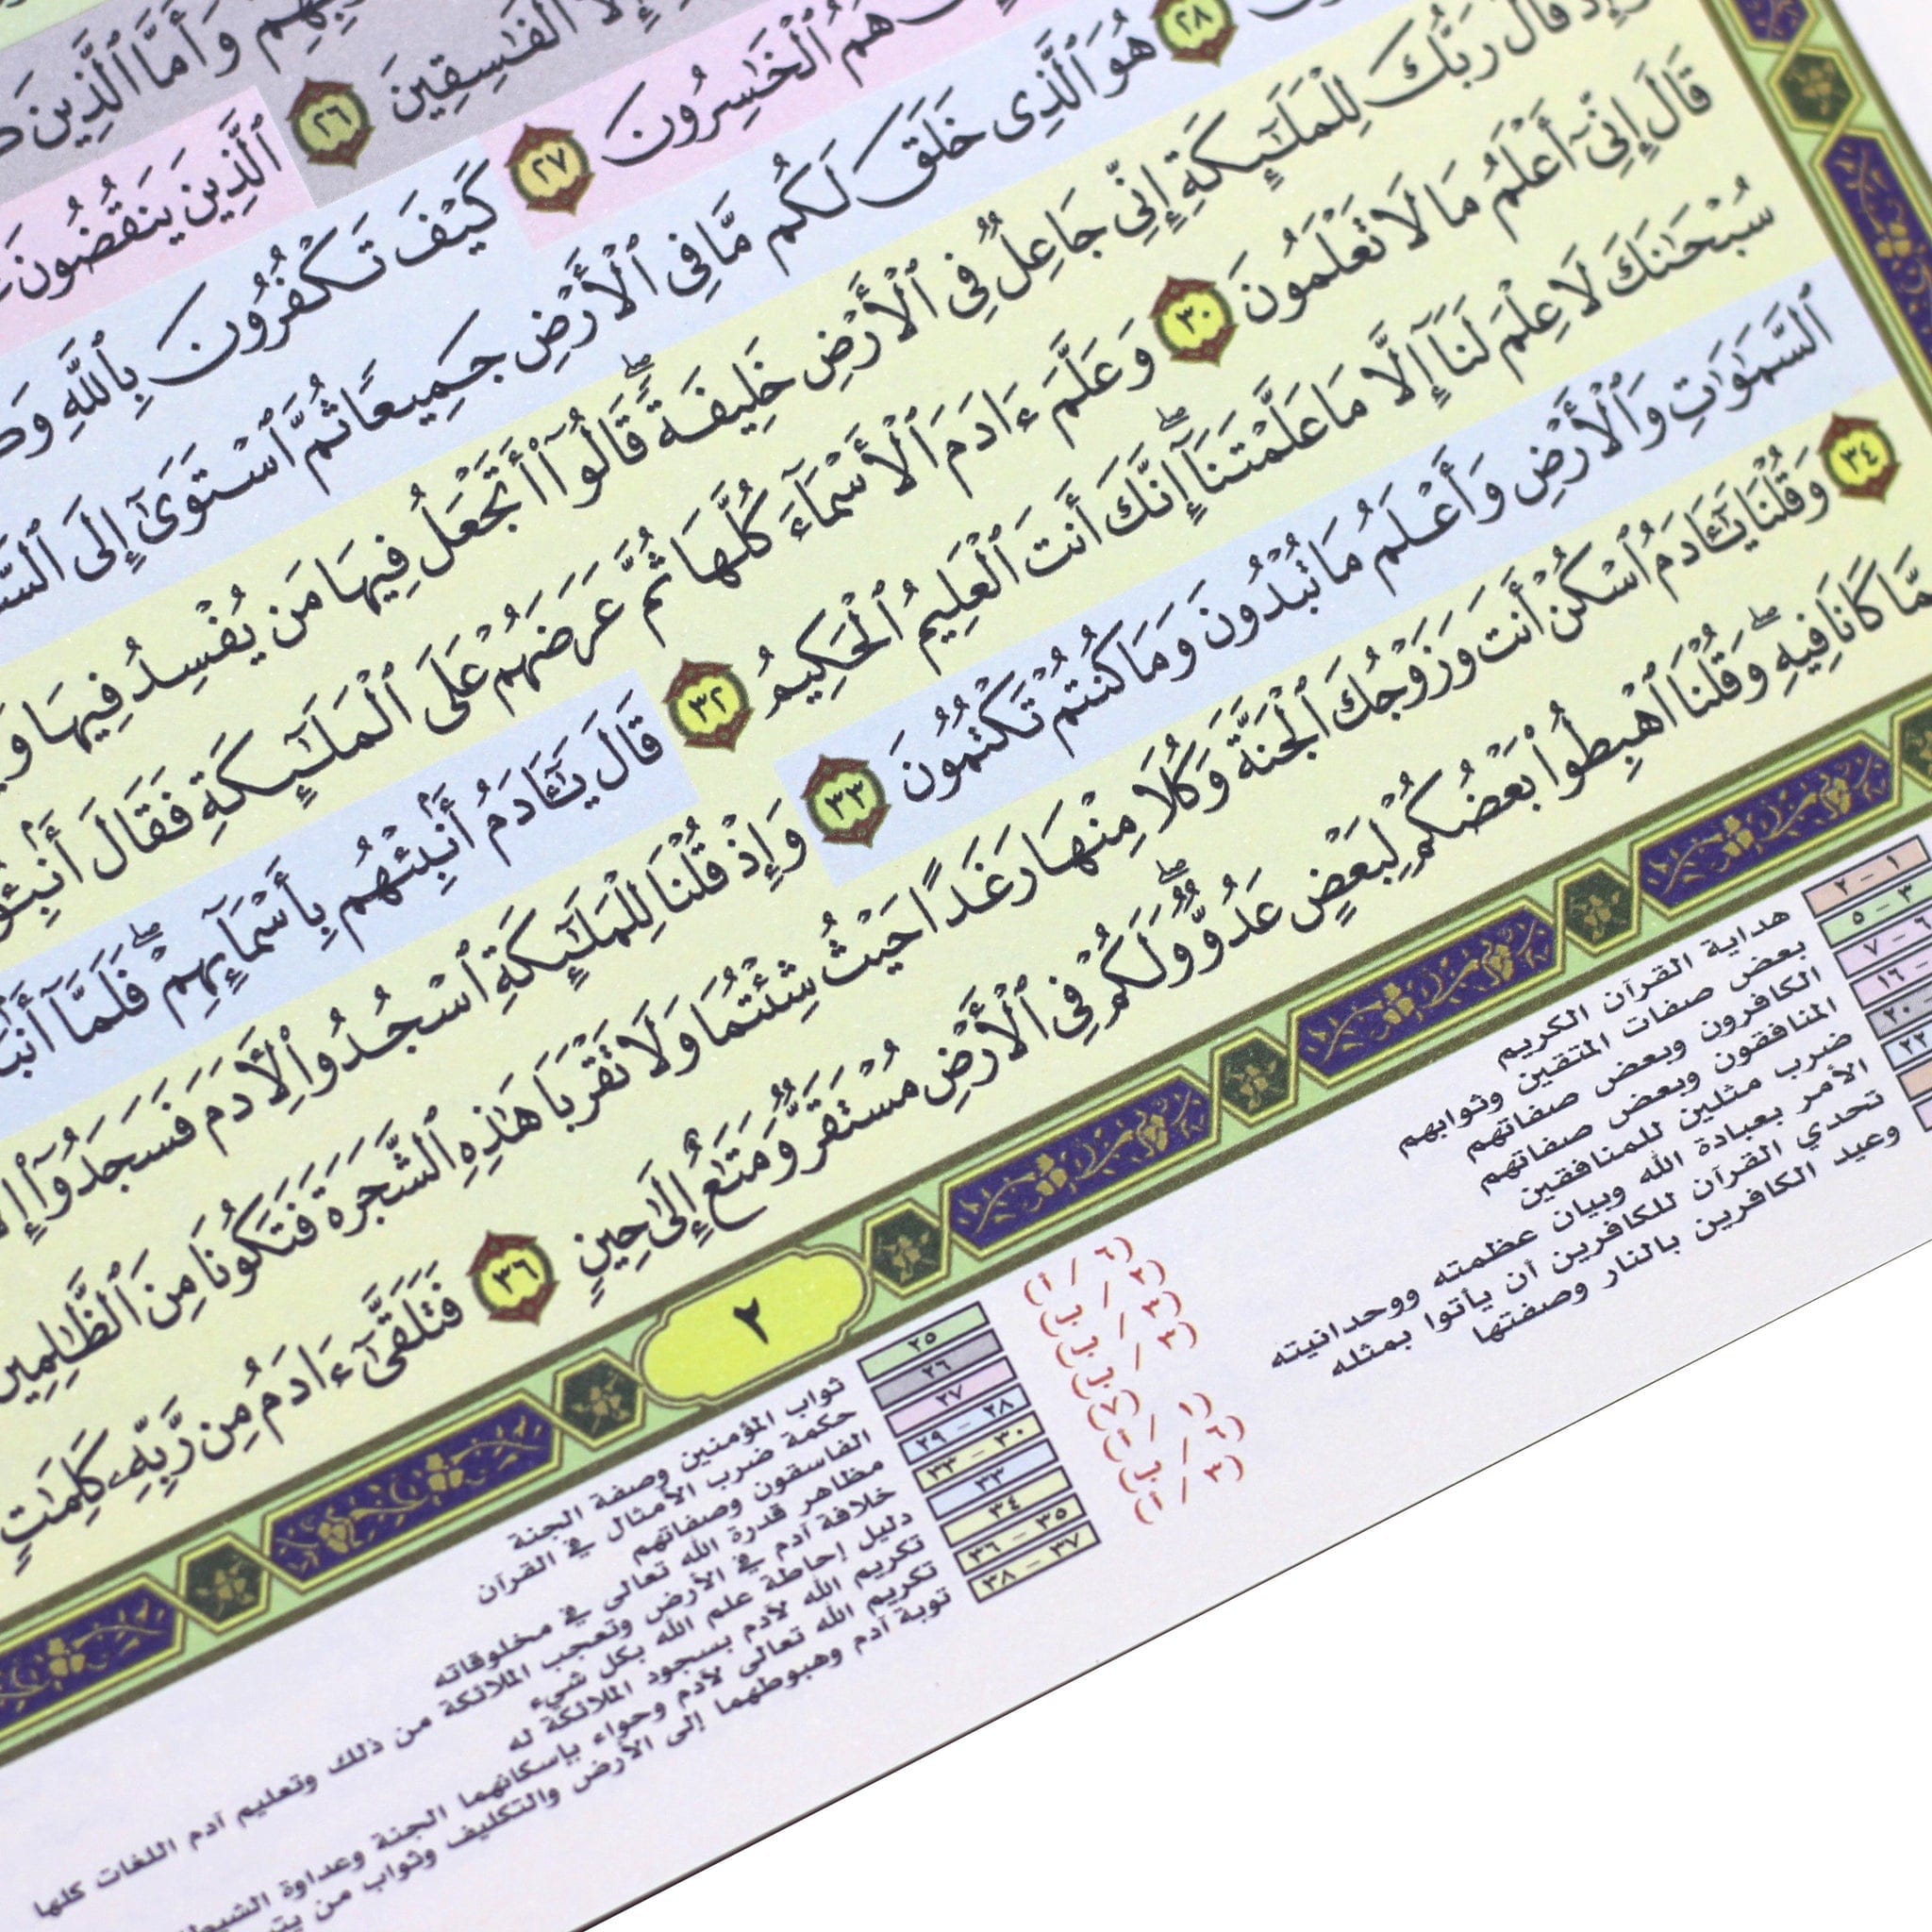 بِهِمْ وَأَمَّا ٱلَّذِينَ
إِلَّا ٱلْفَٰسِقِينَ ٢٦ ٱلَّذِينَ يَنقُضُونَ
هُمُ ٱلْخَٰسِرُونَ ٢٧ كَيْفَ تَكْفُرُونَ بِٱللَّهِ
٢٨ هُوَ ٱلَّذِى خَلَقَ لَكُم مَّا فِى ٱلْأَرْضِ جَمِيعًا ثُمَّ ٱسْتَوَىٰٓ إِلَى
وَإِذْ قَالَ رَبُّكَ لِلْمَلَٰٓئِكَةِ إِنِّى جَاعِلٌ فِى ٱلْأَرْضِ خَلِيفَةً ۖ قَالُوٓا۟ أَتَجْعَلُ فِيهَا مَن يُفْسِدُ فِيهَا
قَالَ إِنِّىٓ أَعْلَمُ مَا لَا تَعْلَمُونَ ٣٠ وَعَلَّمَ ءَادَمَ ٱلْأَسْمَآءَ كُلَّهَا ثُمَّ عَرَضَهُمْ عَلَى ٱلْمَلَٰٓئِكَةِ فَقَالَ
سُبْحَٰنَكَ لَا عِلْمَ لَنَآ إِلَّا مَا عَلَّمْتَنَآ ۖ إِنَّكَ أَنتَ ٱلْعَلِيمُ ٱلْحَكِيمُ ٣٢ قَالَ يَٰٓـَٔادَمُ أَنۢبِئْهُم بِأَسْمَآئِهِمْ ۖ فَلَمَّآ
ٱلسَّمَٰوَٰتِ وَٱلْأَرْضِ وَأَعْلَمُ مَا تُبْدُونَ وَمَا كُنتُمْ تَكْتُمُونَ ٣٣ وَإِذْ قُلْنَا لِلْمَلَٰٓئِكَةِ ٱسْجُدُوا۟ لِءَادَمَ فَسَجَدُوٓا۟
٣٤ وَقُلْنَا يَٰٓـَٔادَمُ ٱسْكُنْ أَنتَ وَزَوْجُكَ ٱلْجَنَّةَ وَكُلَا مِنْهَا رَغَدًا حَيْثُ شِئْتُمَا وَلَا تَقْرَبَا هَٰذِهِ ٱلشَّجَرَةَ فَتَكُونَا مِنَ ٱلظَّٰلِمِينَ
مِمَّا كَانَا فِيهِ ۖ وَقُلْنَا ٱهْبِطُوا۟ بَعْضُكُمْ لِبَعْضٍ عَدُوٌّ ۖ وَلَكُمْ فِى ٱلْأَرْضِ مُسْتَقَرٌّ وَمَتَٰعٌ إِلَىٰ حِينٍ ٣٦ فَتَلَقَّىٰٓ ءَادَمُ مِن رَّبِّهِۦ كَلِمَٰتٍ
٢
١ - ٢ هداية القرآن الكريم
٣ - ٥ بعض صفات المتقين وثوابهم
٦ - ٧ الكافرون وبعض صفاتهم
- ١٦ المنافقون وبعض صفاتهم
٢٠ ضرب مثلين للمنافقين
٢٢ الأمر بعبادة الله وبيان عظمته ووحدانيته
تحدي القرآن للكافرين أن يأتوا بمثله
وعيد الكافرين بالنار وصفتها
٢٥ ثواب المؤمنين وصفة الجنة
٢٦ حكمة ضرب الأمثال في القرآن
٢٧ الفاسقون وصفاتهم
٢٨ - ٢٩ مظاهر قدرة الله تعالى في مخلوقاته
٣٠ - ٣٣ خلافة آدم في الأرض وتعجب الملائكة من ذلك وتعليم آدم اللغات كلها
٣٣ دليل إحاطة علم الله بكل شيء
٣٤ تكريم الله لآدم بسجود الملائكة له
٣٥ - ٣٦ تكريم الله تعالى لآدم وحواء بإسكانهما الجنة وعداوة
٣٧ - ٣٨ توبة آدم وهبوطهما إلى الأرض والتكليف وثواب من